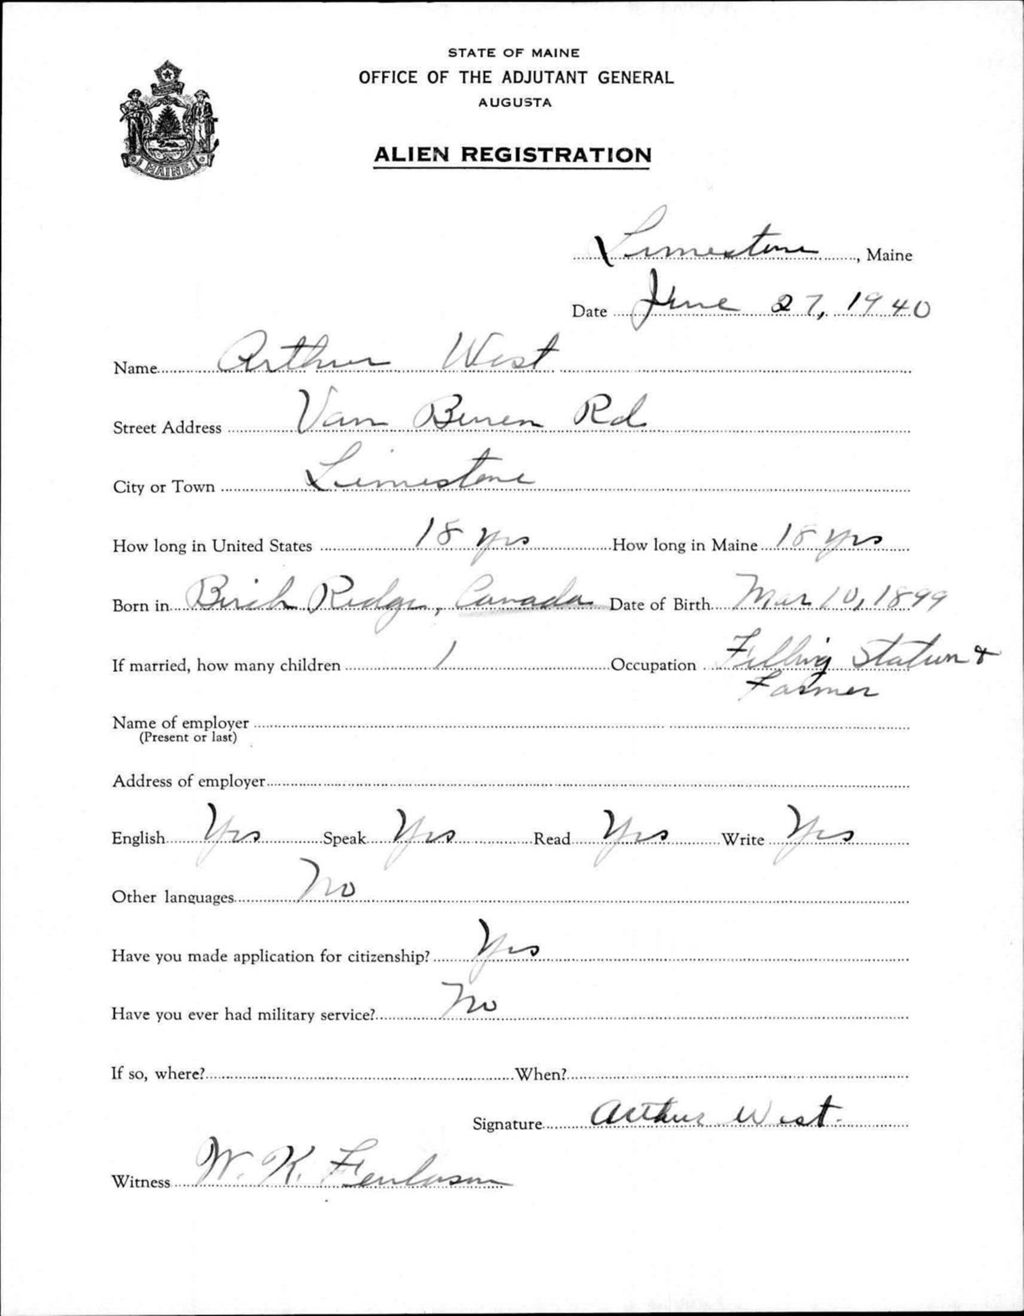 STATE OF MAINE
OFFICE OF THE ADJUTANT GENERAL
AUGUSTA
ALIEN REGISTRATION
MAINE
Limestone, Maine
Date June 27, 1940
Name Arthur West
Street Address Van Buren Rd
City or Town Limestone
How long in United States 18 yrs How long in Maine 18 yrs
Born in Birch Ridge, Canada Date of Birth Mar 10, 1899
If married, how many children 1 Occupation Filling Station &
Farmer
Name of employer
(Present or last)
Address of employer
English Yes Speak Yes Read Yes Write Yes
Other languages No
Have you made application for citizenship? Yes
Have you ever had military service? No
If so, where? When?
Signature Arthur West.
Witness W. K.